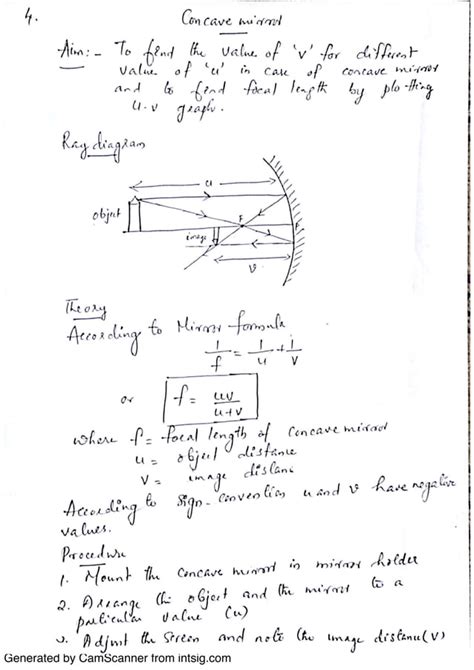 4.
Concave mirror
Aim:- To find the value of 'v' for different
value of 'u' in case of concave mirror
and to find focal length by plotting
u-v graph.
Ray diagram
u
object
F
P
image
v
Theory
According to Mirror formula
1/f = 1/u + 1/v
or f = uv/u+v
where f = focal length of concave mirror
u = object distance
v = image distanc
According to sign-convention u and v have negative
values.
Procedure
1. Mount the concave mirror in mirror holder
2. Arrange the object and the mirror to a
particular value (u)
3. Adjust the screen and note the image distance (v)
Generated by CamScanner from intsig.com